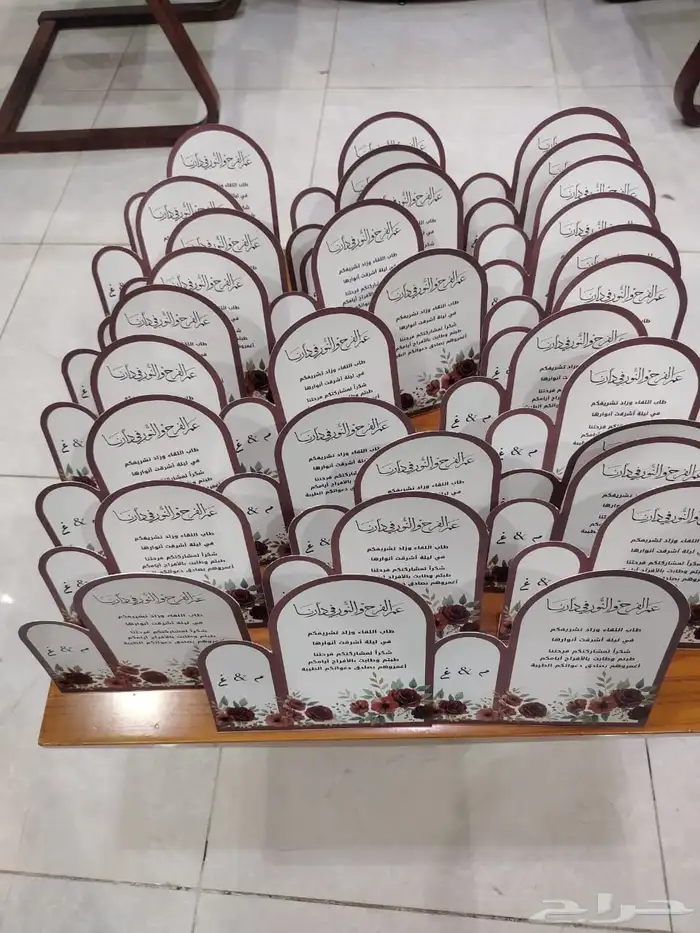 عم الفرح والنور في دارنا
طاب اللقاء وزاد تشريفكم
في ليلة أشرقت أنوارها
شكراً لمشاركتكم فرحتنا
طبتم وطابت بالأفراح أيامكم
اغمروهم بصادق دعواتكم الطيبة
م & غ
حراج